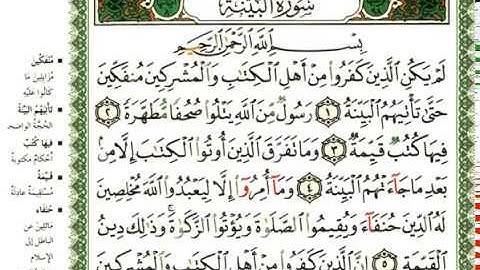 سُورَةُ البَيِّنَةِ
بِسْمِ اللَّهِ الرَّحْمَٰنِ الرَّحِيمِ
لَمْ يَكُنِ الَّذِينَ كَفَرُوا مِنْ أَهْلِ الْكِتَابِ وَالْمُشْرِكِينَ مُنفَكِّينَ
حَتَّىٰ تَأْتِيَهُمُ الْبَيِّنَةُ ١ رَسُولٌ مِّنَ اللَّهِ يَتْلُو صُحُفًا مُّطَهَّرَةً ٢
فِيهَا كُتُبٌ قَيِّمَةٌ ٣ وَمَا تَفَرَّقَ الَّذِينَ أُوتُوا الْكِتَابَ إِلَّا مِنۢ
بَعْدِ مَا جَاءَتْهُمُ الْبَيِّنَةُ ٤ وَمَا أُمِرُوا إِلَّا لِيَعْبُدُوا اللَّهَ مُخْلِصِينَ
لَهُ الدِّينَ حُنَفَاءَ وَيُقِيمُوا الصَّلَوٰةَ وَيُؤْتُوا الزَّكَوٰةَ ۚ وَذَٰلِكَ دِينُ
الْقَيِّمَةِ ٥ إِنَّ الَّذِينَ كَفَرُوا مِنْ أَهْلِ الْكِتَابِ وَالْمُشْرِكِينَ
مُنفَكِّينَ
مُزَايِلِينَ مَا
كَانُوا عَلَيْهِ
تَأْتِيَهُمُ الْبَيِّنَةُ
الحُجَّةُ الوَاضِحَة
فِيهَا كُتُبٌ
أَحْكَامٌ مَكْتُوبَةٌ
قَيِّمَةٌ
مُسْتَقِيمَةٌ عَادِلَةٌ
حُنَفَاءَ
مَائِلِينَ عَنِ
الباطل إلى
الإسلام